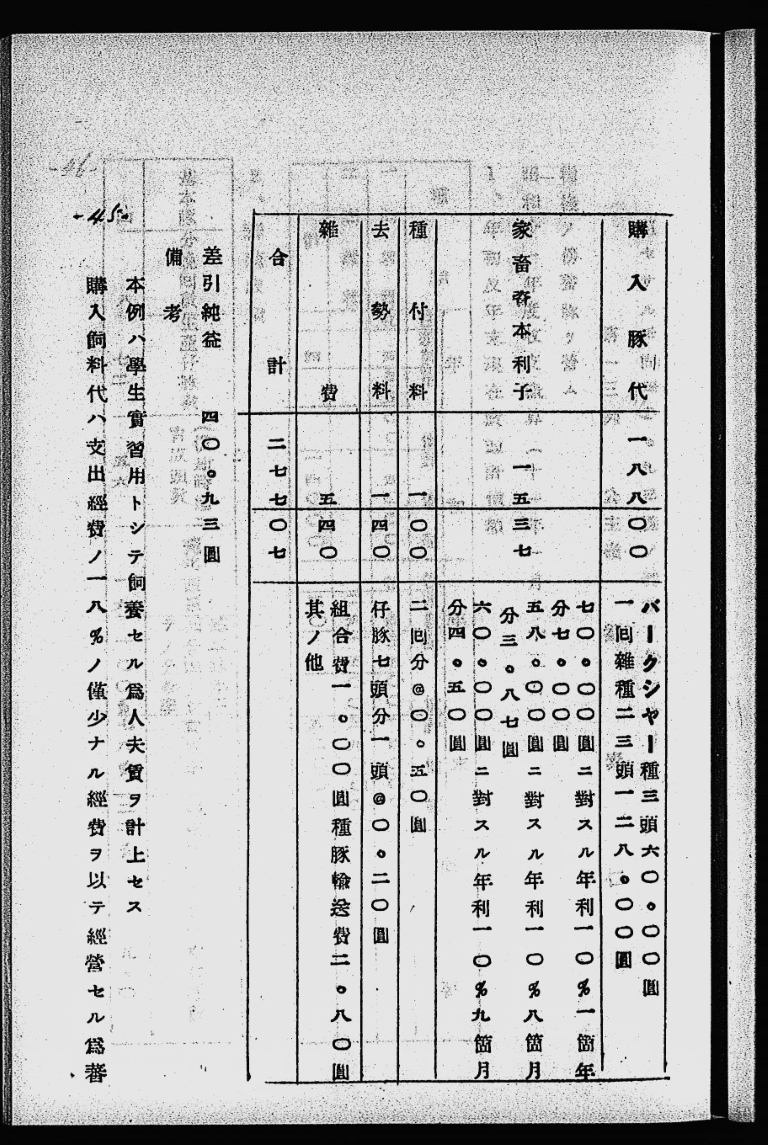 購入豚代 一八八〇〇 バークシャー種三頭六〇。〇〇圓
一回雜種二三頭一二八。〇〇圓
家畜資本利子 一五三七 七〇。〇〇圓ニ對スル年利一〇%一箇年
分七。〇〇圓
五八。〇〇圓ニ對スル年利一〇%八箇月
分三。八七圓
六〇。〇〇圓ニ對スル年利一〇%九箇月
分四。五〇圓
種付料 一〇〇 二回分@〇。五〇圓
去勢料 一四〇 仔豚七頭分一頭@〇。二〇圓
雜費 五四〇 組合費一。〇〇圓種豚輸送費二。八〇圓
其ノ他
合計 二七七〇七
差引純益 四〇。九三圓
備考
本例ハ學生實習用トシテ飼養セル爲人夫賃ヲ計上セス
購入飼料代ハ支出經費ノ一八%ノ僅少ナル經費ヲ以テ經營セル爲蕃
-45-